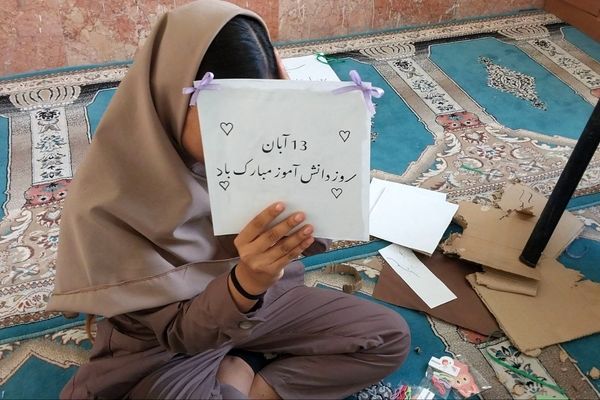 13 آبان
روز دانش آموز مبارک باد